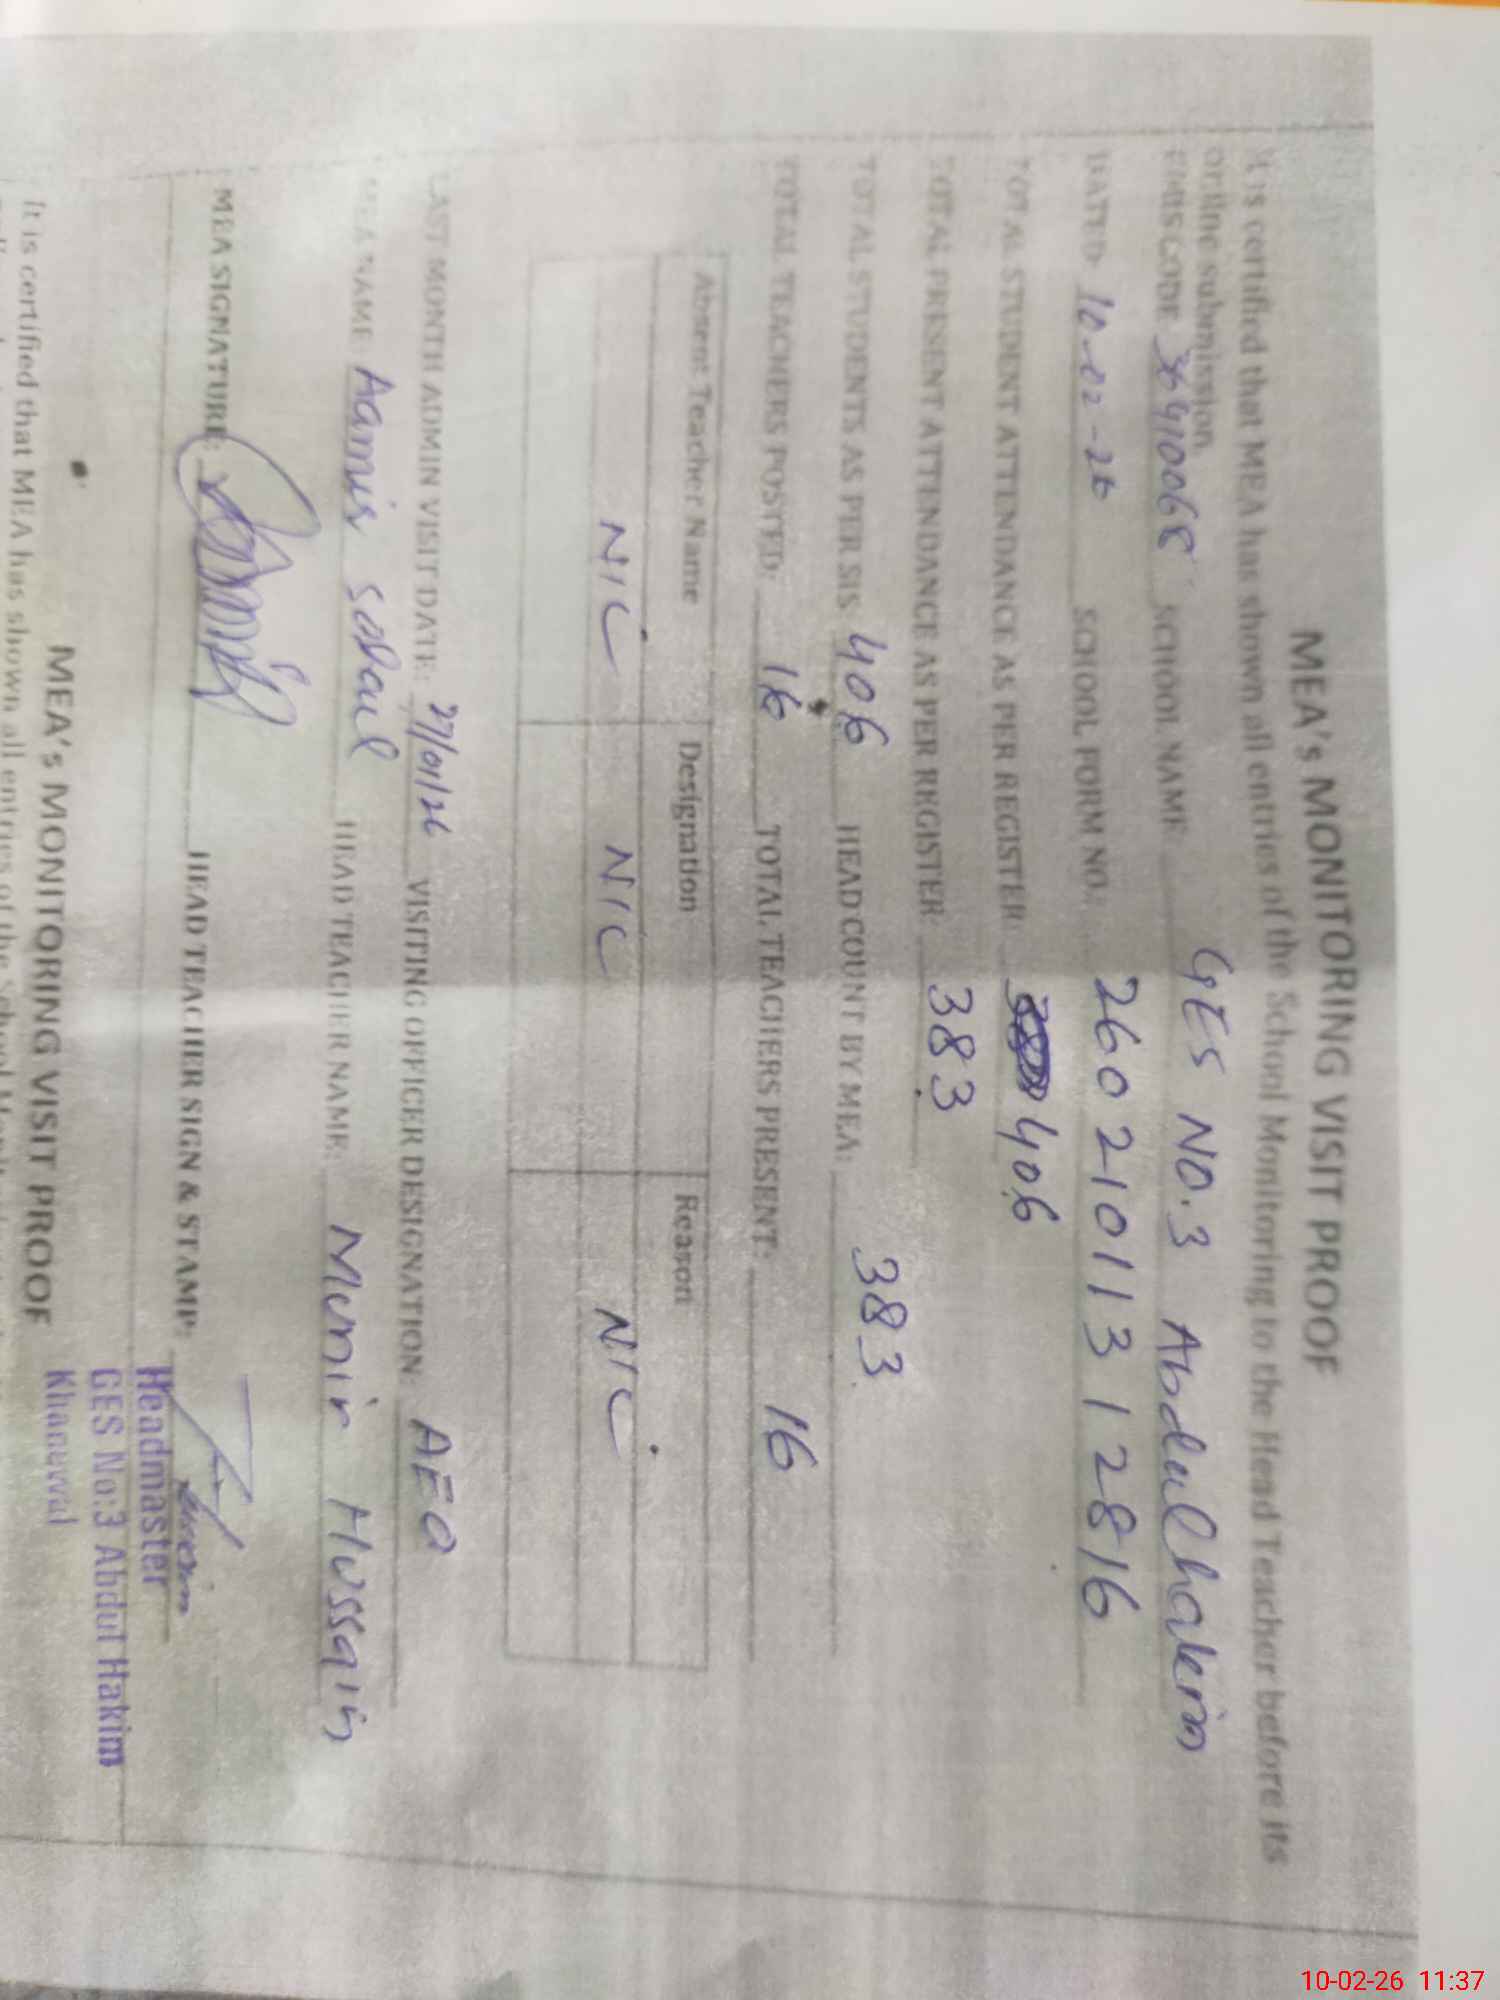 MEA's MONITORING VISIT PROOF
It is certified that MEA has shown all entries of the School Monitoring to the Head Teacher before its
online submission.
EMIS CODE 36410068 SCHOOL NAME GES NO.3 Abdulhakim
DATED: 10-02-26 SCHOOL FORM NO.: 2602101131 2816
TOTAL STUDENT ATTENDANCE AS PER REGISTER: 406
TOTAL PRESENT ATTENDANCE AS PER REGISTER: 383
TOTAL STUDENTS AS PER SIS 406 HEAD COUNT BY MEA: 383
TOTAL TEACHERS POSTED: 16 TOTAL TEACHERS PRESENT: 16
Absent Teacher Name Designation Reason
NIL NIL NIL
LAST MONTH ADMIN VISIT DATE: 27/01/26 VISITING OFFICER DESIGNATION: AEO
MEA NAME Aamir HEAD TEACHER NAME: Munir Hussain
MEA SIGNATURE: HEAD TEACHER SIGN & STAMP:
Headmaster
GES No:3 Abdul Hakim
Khanewal
MEA's MONITORING VISIT PROOF
It is certified that MEA has shown all entries of the School
10-02-26 11:37